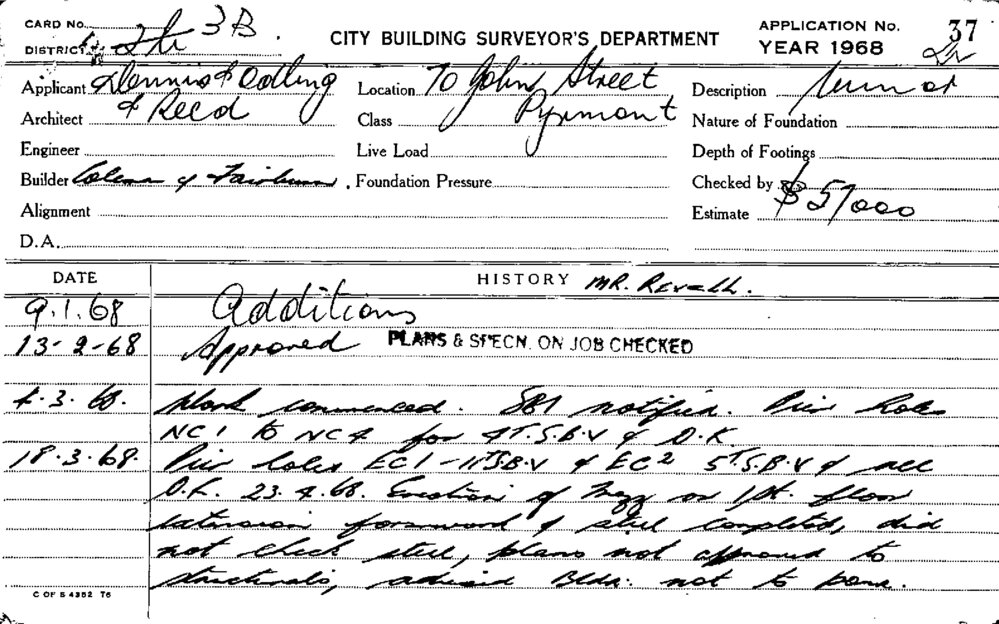 CARD No. 3B.
DISTRICT
CITY BUILDING SURVEYOR'S DEPARTMENT
APPLICATION No. 37
YEAR 1968
Applicant Dennis & Codling
Location 70 John Street
Description
Architect & Reed
Class Pyrmont
Nature of Foundation
Engineer
Live Load
Depth of Footings
Builder &
Foundation Pressure
Checked by
Alignment
Estimate $57000
D.A.
DATE
HISTORY MR. Revell.
9.1.68 Additions
13-2-68 Approved PLANS & SPECN. ON JOB CHECKED
4.3.68. Work commenced. SBI notified. Pier holes
NC1 to NC4 for 4T.S.B.V & O.K.
18.3.68. Pier holes EC1-11T.S.B.V & EC2 5T.S.B.V & all
O.K. 23.4.68. Erection of Mezz or 1st. floor
extension formwork & steel completed, did
not check steel, plans not approved to
structurals, advised Bldr. not to pour.
C OF S 4352 76